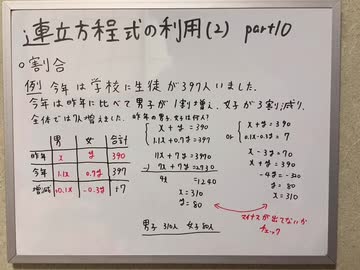 連立方程式の利用(2) part10
○割合
例 今年は学校に生徒が397人いました。
今年は昨年に比べて男子が1割増え、女子が3割減り、
全体では7人増えました。昨年の男子、女子は何人?
男 女 合計
昨年 x y 390
今年 1.1x 0.7y 397
増減 +0.1x -0.3y +7
x + y = 390
1.1x + 0.7y = 397
11x + 7y = 3970
-) 7x + 7y = 2730
4x = 1240
x = 310
y = 80
or
x + y = 390
0.1x - 0.3y = 7
x - 3y = 70
x + y = 390
-4y = -320
y = 80
x = 310
マイナスが出てないか
チェック
男子 310人 女子 80人